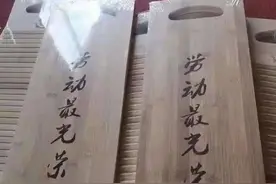 劳动最光荣
劳动最光荣